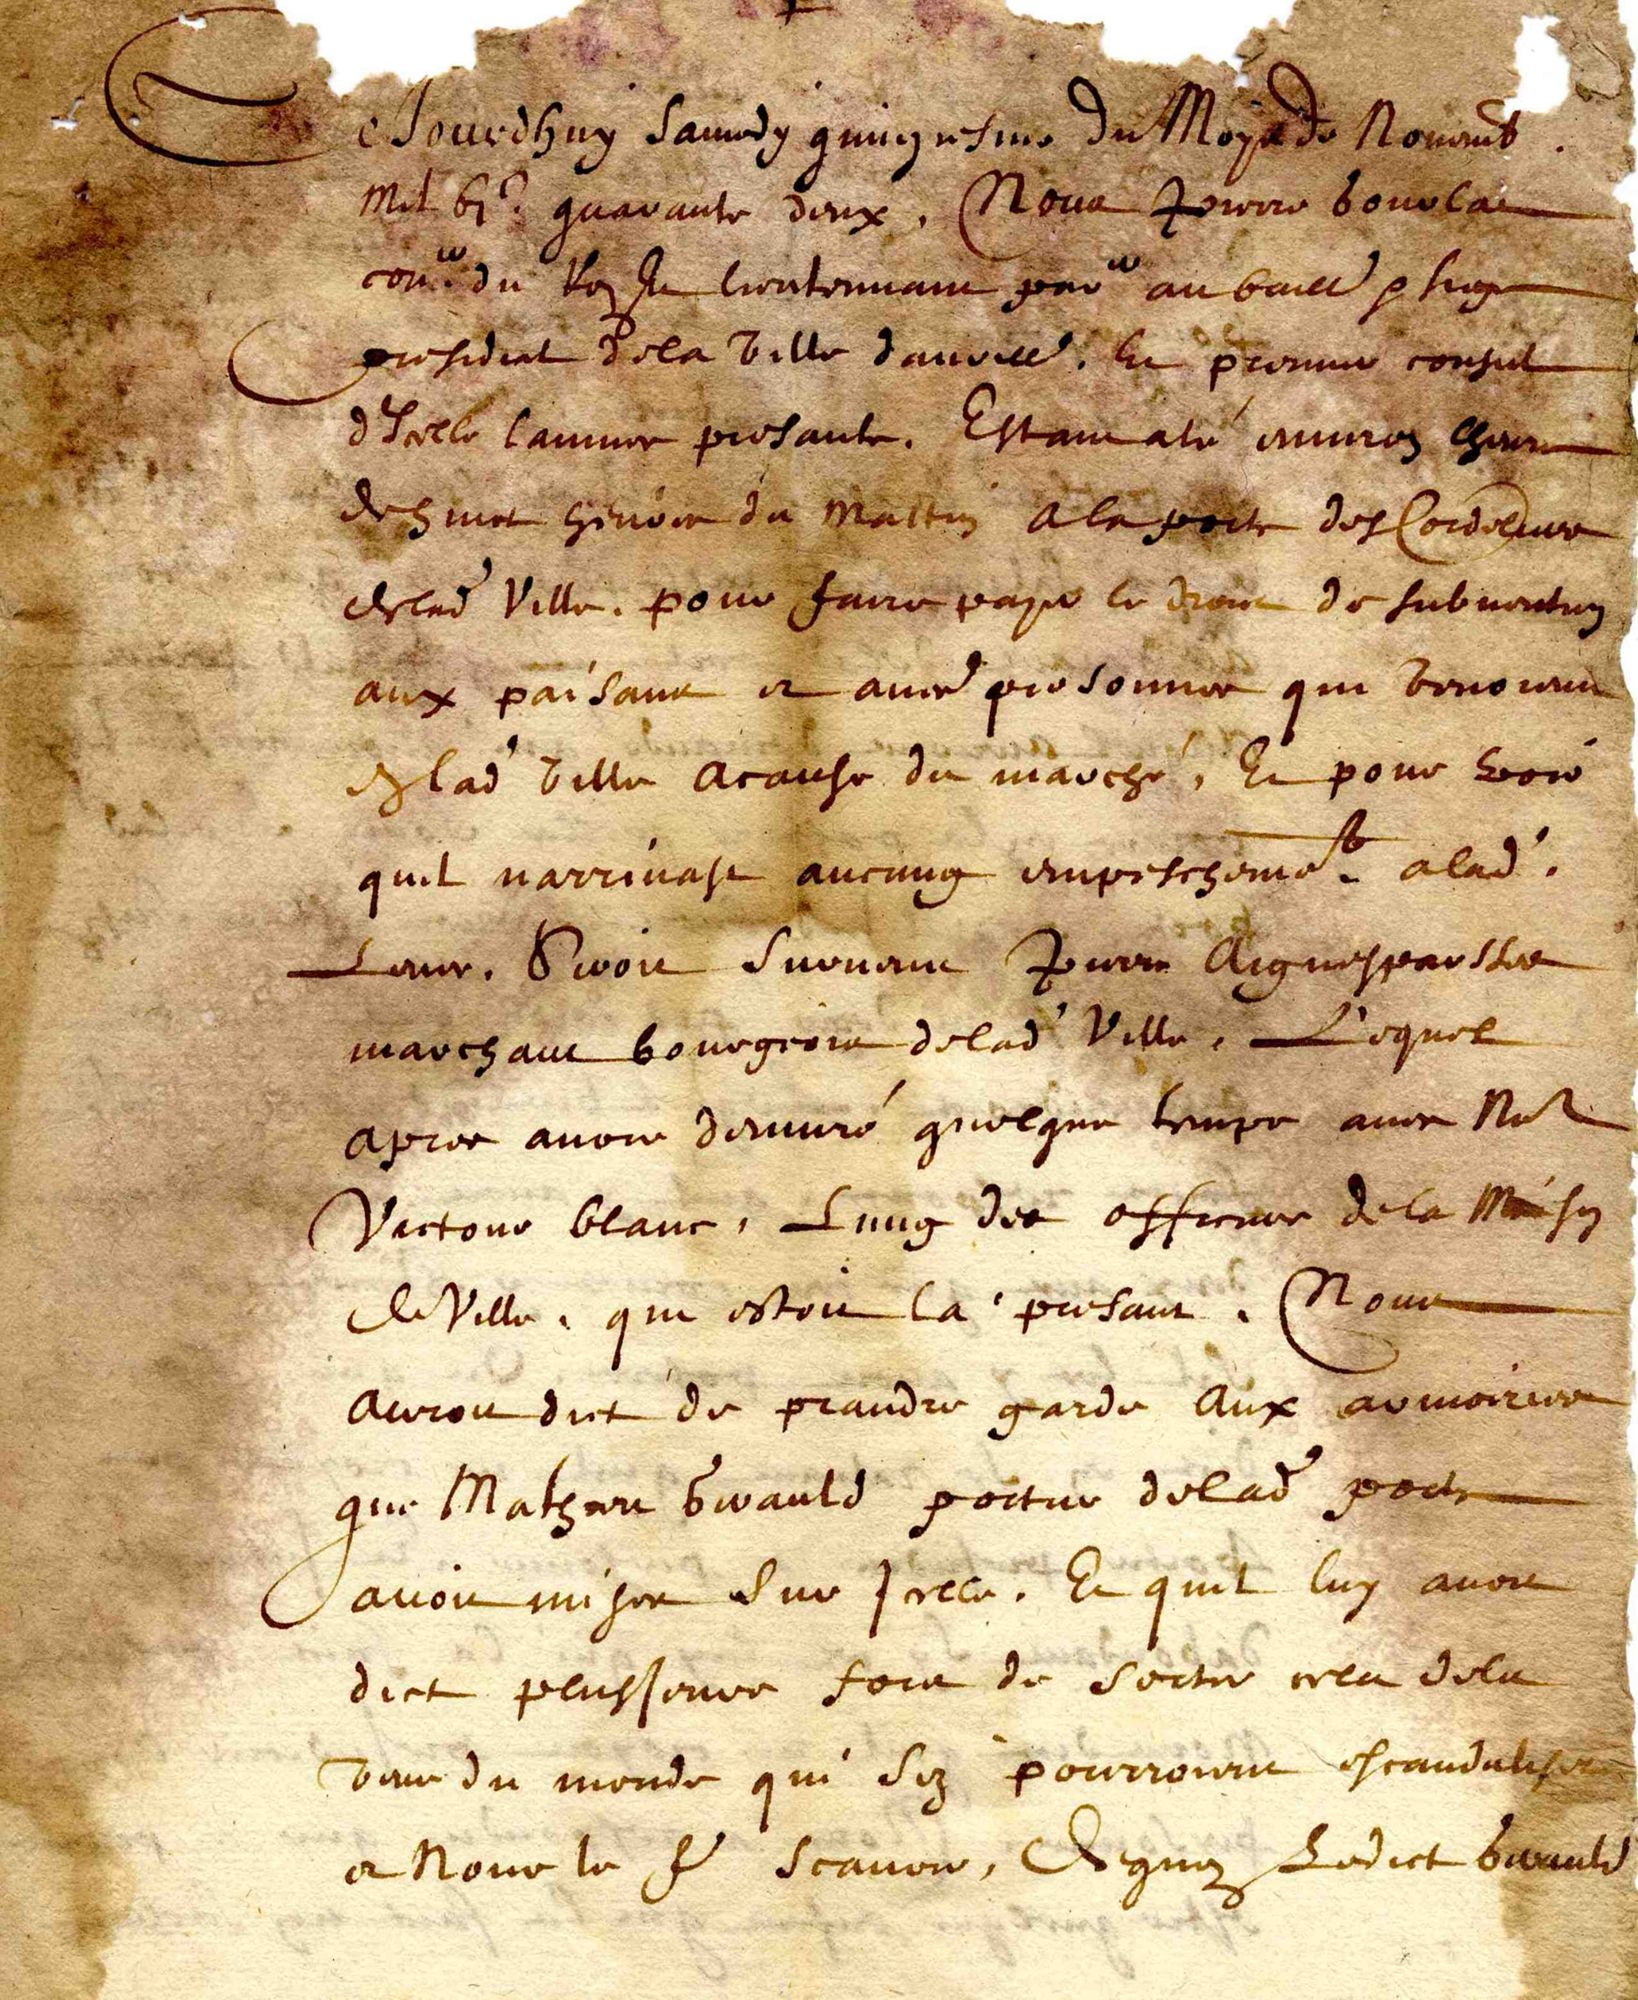 Ce Jourdhuy Samedy quinziesme du Moys de Novemb.
Mil vjc. quarante deux, Nous Pierre
con.er du Roy Et lieutennant par.er au baill.
presidial dela Ville daurill. Et premier consul
dIcelle lannee presante. Estant alé environ heure
de huict heures du Mattin a la porte des Cordeliers
de lad Ville. pour faire payer le droict de subvention
aux païsans et autr. personnes qui venoient
en lad Ville acause du marché, Et pour voir
quil narrivast aucung empeschemet. a lad.
Levee. Seroit survenu Pierre Aigueparsses
marchant bourgeois delad Ville, Lequel
apres avoir demuré quelque temps avec Me
Victour blanc, Lung des officiers de la Maison
de Ville, qui estoit la presant. Nous
auroit dict de prandre garde aux armoiries
que Mathieu Giraułd portier delad porte
avoit mises sur Icelle. Et quil luy avoit
dict plusieurs fois de sortir cela dela
veue du monde qui sen pourroient escandaliser
et Nous le fe scavoir, Dequoy Ledict Girauld